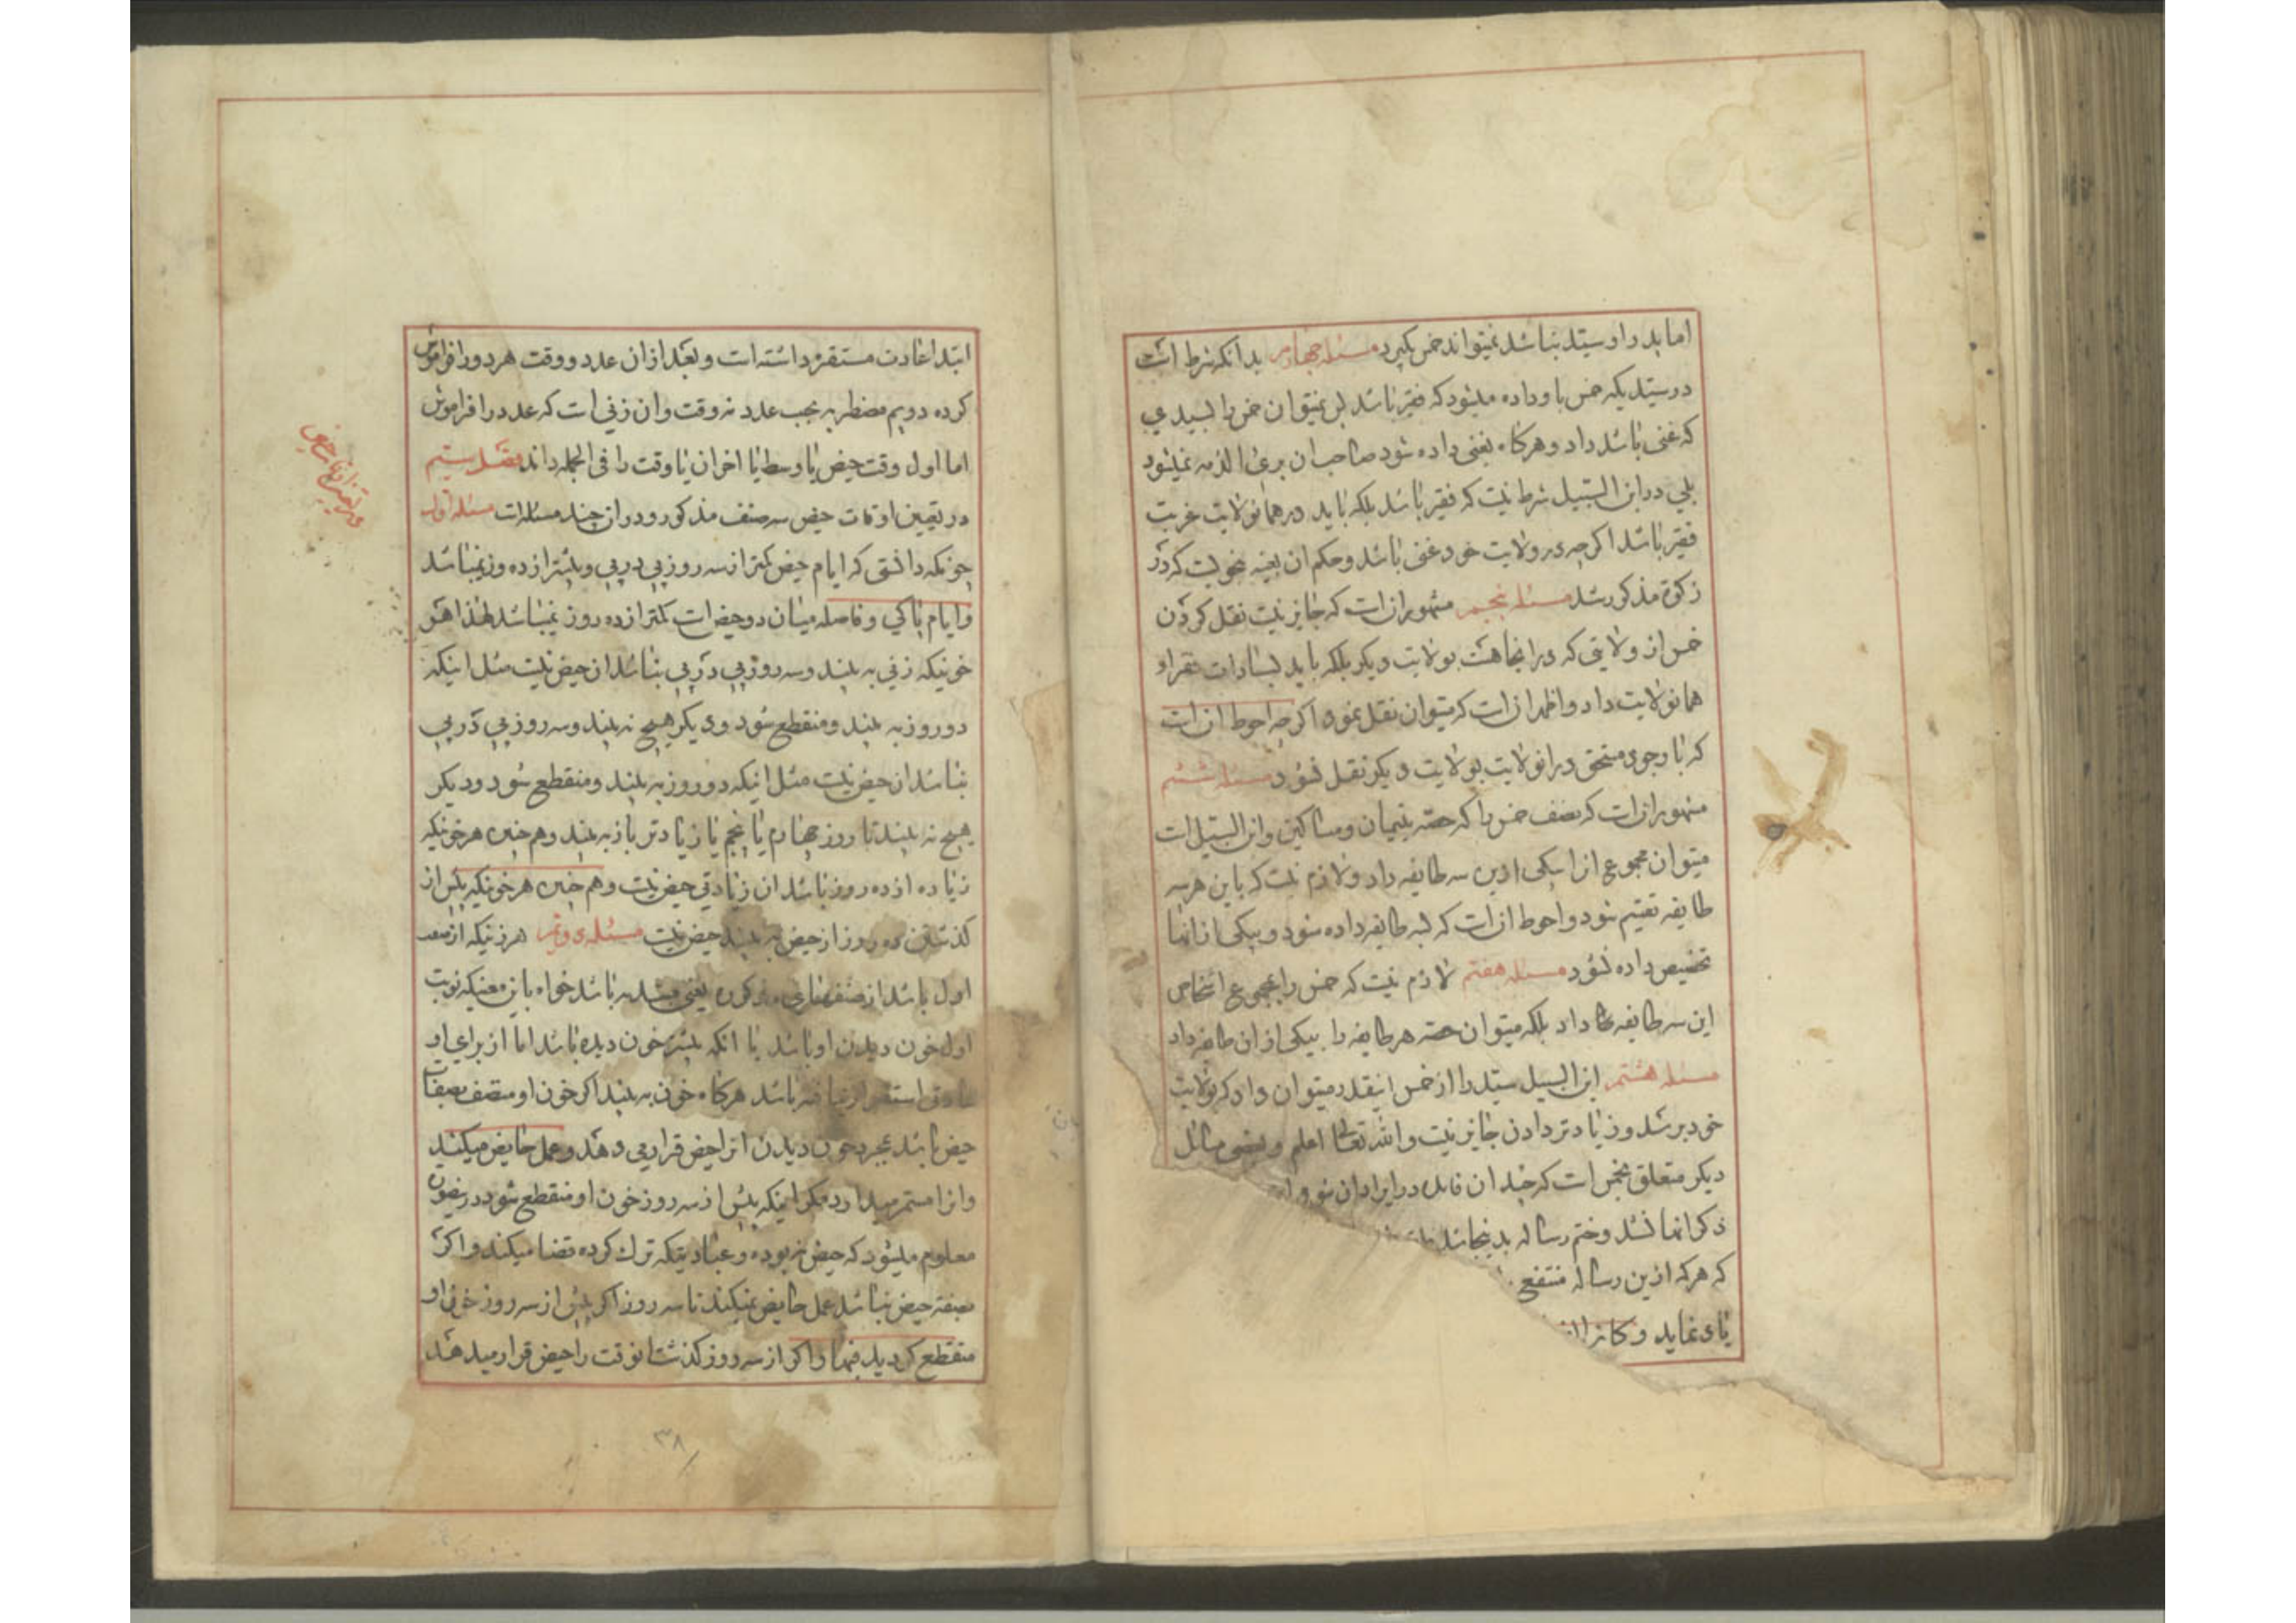 اما پدر او سید نباشد نمیتواند خمس بگیرد مسئله چهارم بدانکه شرط است
در سیدیکه خمس باو داده میشود که فقیر باشد پس نمیتوان خمس را بسیدی
که غنی باشد داد و هرگاه بغنی داده شود صاحب ان بری الذمه نمیشود
بلی در ابن السبیل شرط نیست که فقیر باشد بلکه باید در همانولایت غربت
فقیر باشد اگرچه در ولایت خود غنی باشد و حکم ان بعینه نحویست که در
زکوة مذکور شد مسئله پنجم مشهور انست که جایز نیست نقل کردن
خمس از ولایتی که در انجا هست بولایت دیگر بلکه باید بسادات فقراء
همانولایت داد و اظهر انست که میتوان نقل نمود اگرچه احوط انست
که با وجود مستحق در انولایت بولایت دیگر نقل نشود مسئله ششم
مشهور انست که نصف خمس را که حصه یتیمان و مساکین و ابن السبیل است
میتوان مجموع انرا بیکی ازین سه طایفه داد و لازم نیست که باین هر سه
طایفه تقسیم شود و احوط انست که بسه طایفه داده شود و بیکی از انها
تخصیص داده نشود مسئله هفتم لازم نیست که خمس را بمجموع اشخاص
این سه طایفه داد بلکه میتوان حصه هر طایفه را بیکی از ان طایفه داد
مسئله هشتم ابن السبیل سید را از خمس اینقدر میتوان داد که بولایت
خود برسد و زیادتر دادن جایز نیست والله تعالی اعلم و بعضی مسائل
دیگر متعلق بخمس است که چندان فایده در ایراد ان نبود
ذکر انها نشد و ختم رساله بدینجا شد
که هر که ازین رساله منتفع
یاد نماید و
ابتدا عادت مستقره داشته است و بعد از ان عدد و وقت هر دو را فراموش
کرده دویم مضطربه بحسب عدد نه وقت و ان زنی است که عدد را فراموش
اما اول وقت حیض یا وسط یا اخر ان یا وقت را فی الجمله داند مقصد سیم
در تعیین اوقات حیض سه صنف مذکور و در ان چند مسئله است مسئله اول
چونکه دانستی که ایام حیض کمتر از سه روز پی در پی و بیشتر از ده روز نمیباشد
و ایام پاکی و فاصله میان دو حیض است کمتر از ده روز نمیباشد لهذا هر
خونیکه زنی به بیند و سه روز پی در پی نباشد ان حیض نیست مثل اینکه
دو روز به بیند و منقطع شود و دیگر هیچ نه بیند و سه روز پی در پی
نباشد ان حیض نیست مثل اینکه دو روز به بیند و منقطع شود و دیگر
هیچ نه بیند تا روز چهارم یا پنجم یا زیادتر باز به بیند و هم چنین هر خونیکه
زیاده از ده روز باشد ان زیادتی حیض نیست و هم چنین هر خونیکه پیش از
گذشتن ده روز از حیض به بیند حیض نیست مسئله دویم هر زنیکه از صنف
اول باشد از صنفهای مذکوره یعنی مبتدئه باشد خواه باین معنیکه نوبت
اول خون دیدن او باشد یا انکه بیشتر خون دیده باشد اما از برای او
عادتی استقرار نیافته باشد هرگاه خون به بیند اگر خون او متصف بصفات
حیض باشد بمجرد خون دیدن انرا حیض قرار می دهد و عمل حایض میکند
و انرا مستمر میدارد مگر اینکه پیش از سه روز خون او منقطع شود درینصورت
معلوم میشود که حیض نبوده و عبادتیکه ترک کرده قضا میکند و اگر
بصفة حیض نباشد عمل حایض نمیکند تا سه روز اگر پیش از سه روز خون او
منقطع گردید فبها و اگر از سه روز گذشت انوقت را حیض قرار میدهد
۳۸